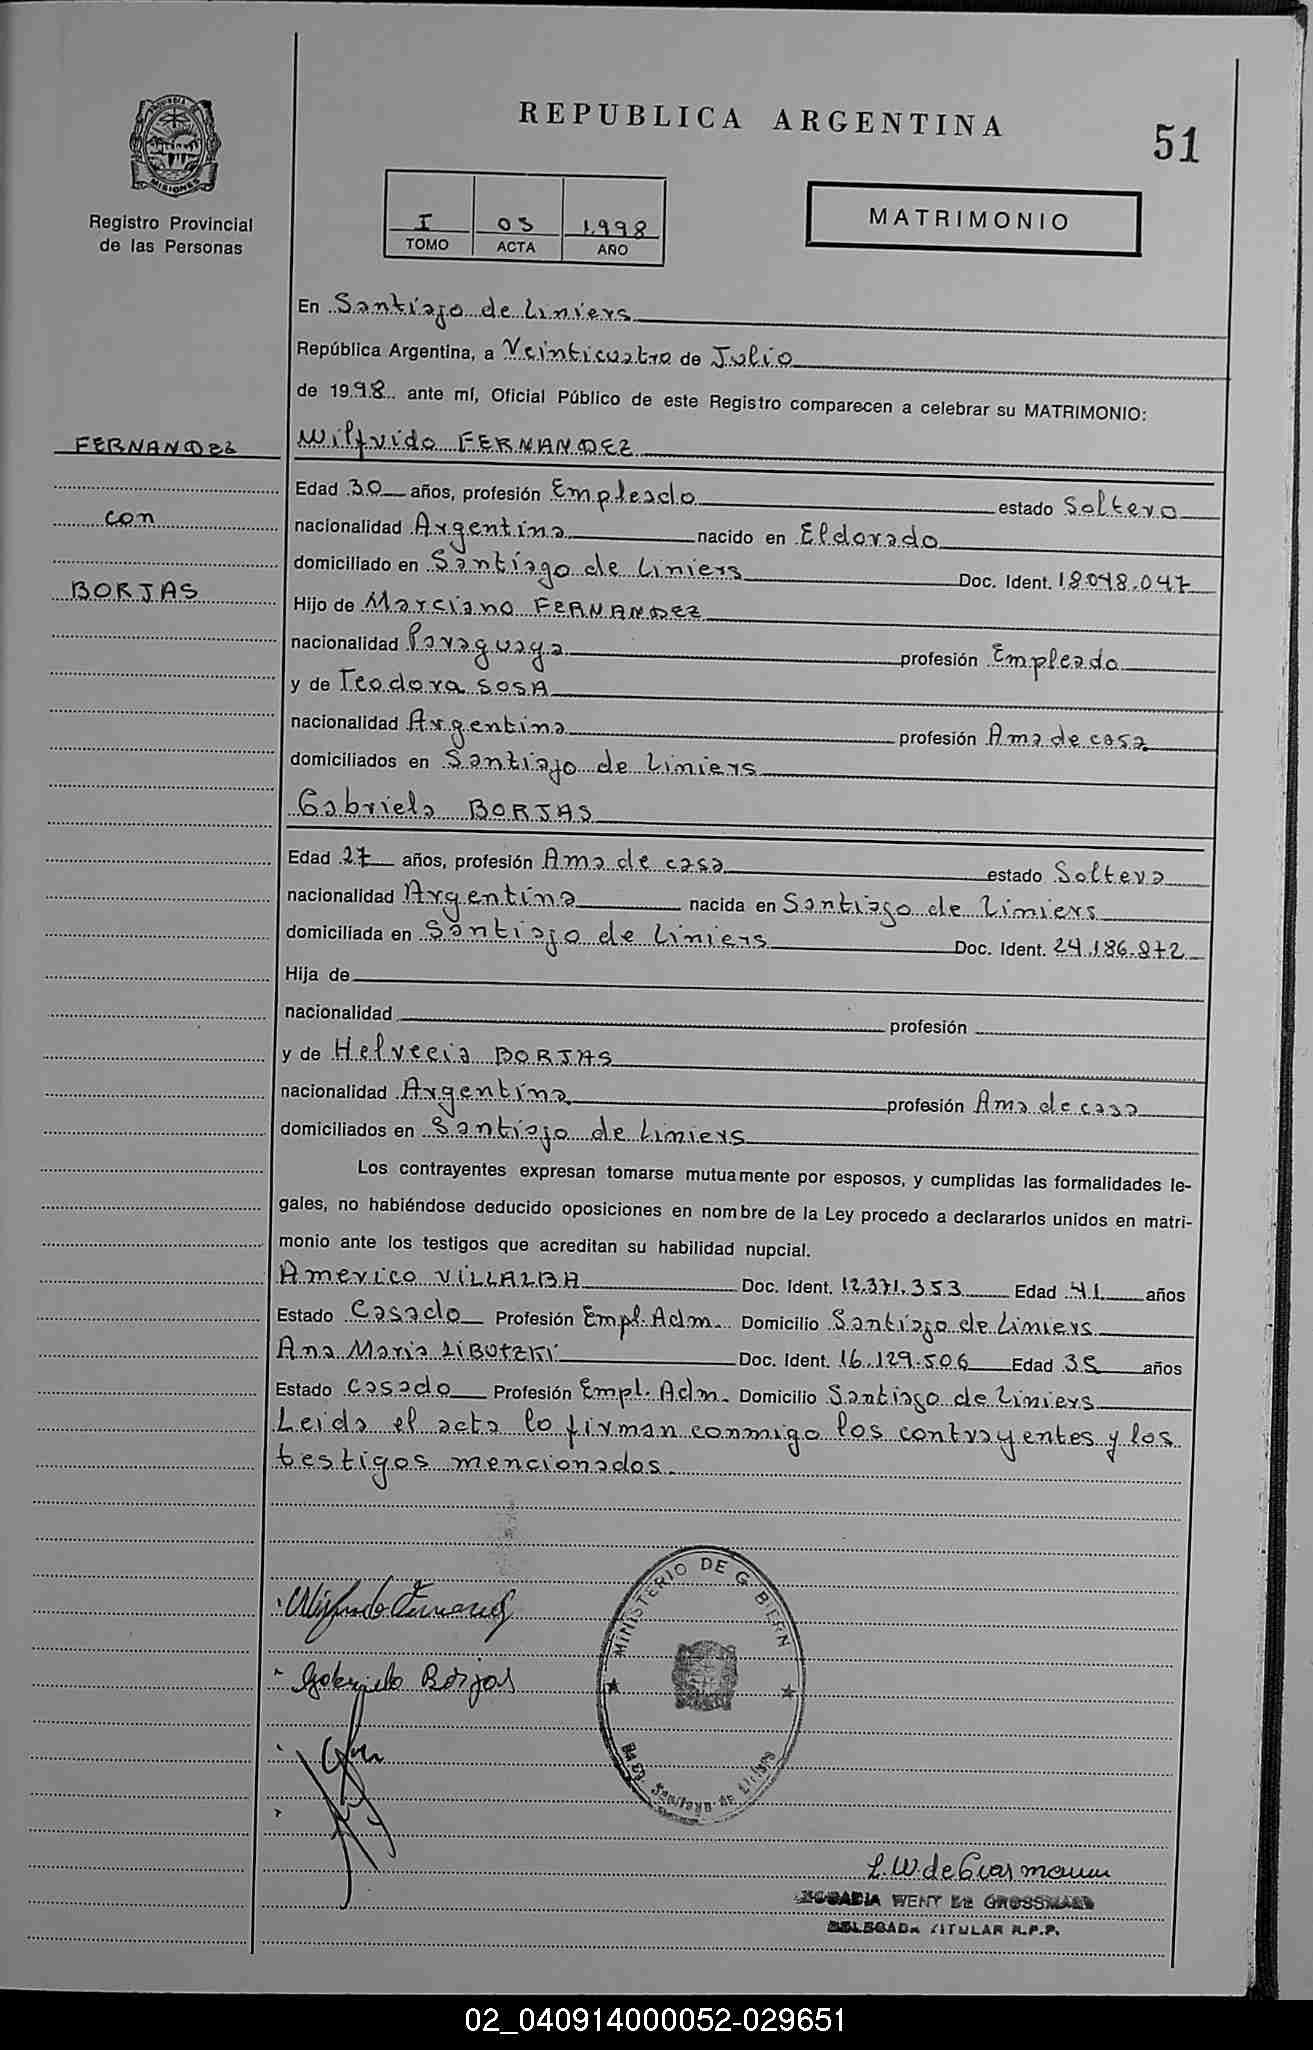 PROVINCIA DE
MISIONES
Registro Provincial
de las Personas
REPUBLICA ARGENTINA
51
I 05 1.998
TOMO ACTA AÑO
MATRIMONIO
En Santiago de Liniers
República Argentina, a Veinticuatro de Julio
de 1998 ante mí, Oficial Público de este Registro comparecen a celebrar su MATRIMONIO:
FERNANDEZ
con
BORJAS
Wilfrido FERNANDEZ
Edad 30 años, profesión Empleado estado Soltero
nacionalidad Argentina nacido en Eldorado
domiciliado en Santiago de Liniers Doc. Ident. 18.048.047
Hijo de Marciano FERNANDEZ
nacionalidad Paraguaya profesión Empleado
y de Teodora SOSA
nacionalidad Argentina profesión Ama de casa
domiciliados en Santiago de Liniers
Gabriela BORJAS
Edad 27 años, profesión Ama de casa estado Soltera
nacionalidad Argentina nacida en Santiago de Liniers
domiciliada en Santiago de Liniers Doc. Ident. 24.186.872
Hija de
nacionalidad profesión
y de Helvecia BORJAS
nacionalidad Argentina profesión Ama de casa
domiciliados en Santiago de Liniers
Los contrayentes expresan tomarse mutuamente por esposos, y cumplidas las formalidades le-
gales, no habiéndose deducido oposiciones en nombre de la Ley procedo a declararlos unidos en matri-
monio ante los testigos que acreditan su habilidad nupcial.
Americo VILLALBA Doc. Ident. 12.371.353 Edad 41 años
Estado Casado Profesión Empl. Adm. Domicilio Santiago de Liniers
Ana Maria LIBUTZKI Doc. Ident. 16.129.506 Edad 35 años
Estado Casado Profesión Empl. Adm. Domicilio Santiago de Liniers
Leida el acta lo firman conmigo los contrayentes y los
testigos mencionados.
MINISTERIO DE G BIERN
Santiago de Liniers
Wilfrido Fernandez
Gabriela Borjas
L. W. de Grosmann
WENT DE GROSSMANN
DELEGADA TITULAR R.P.P.
02_040914000052-029651